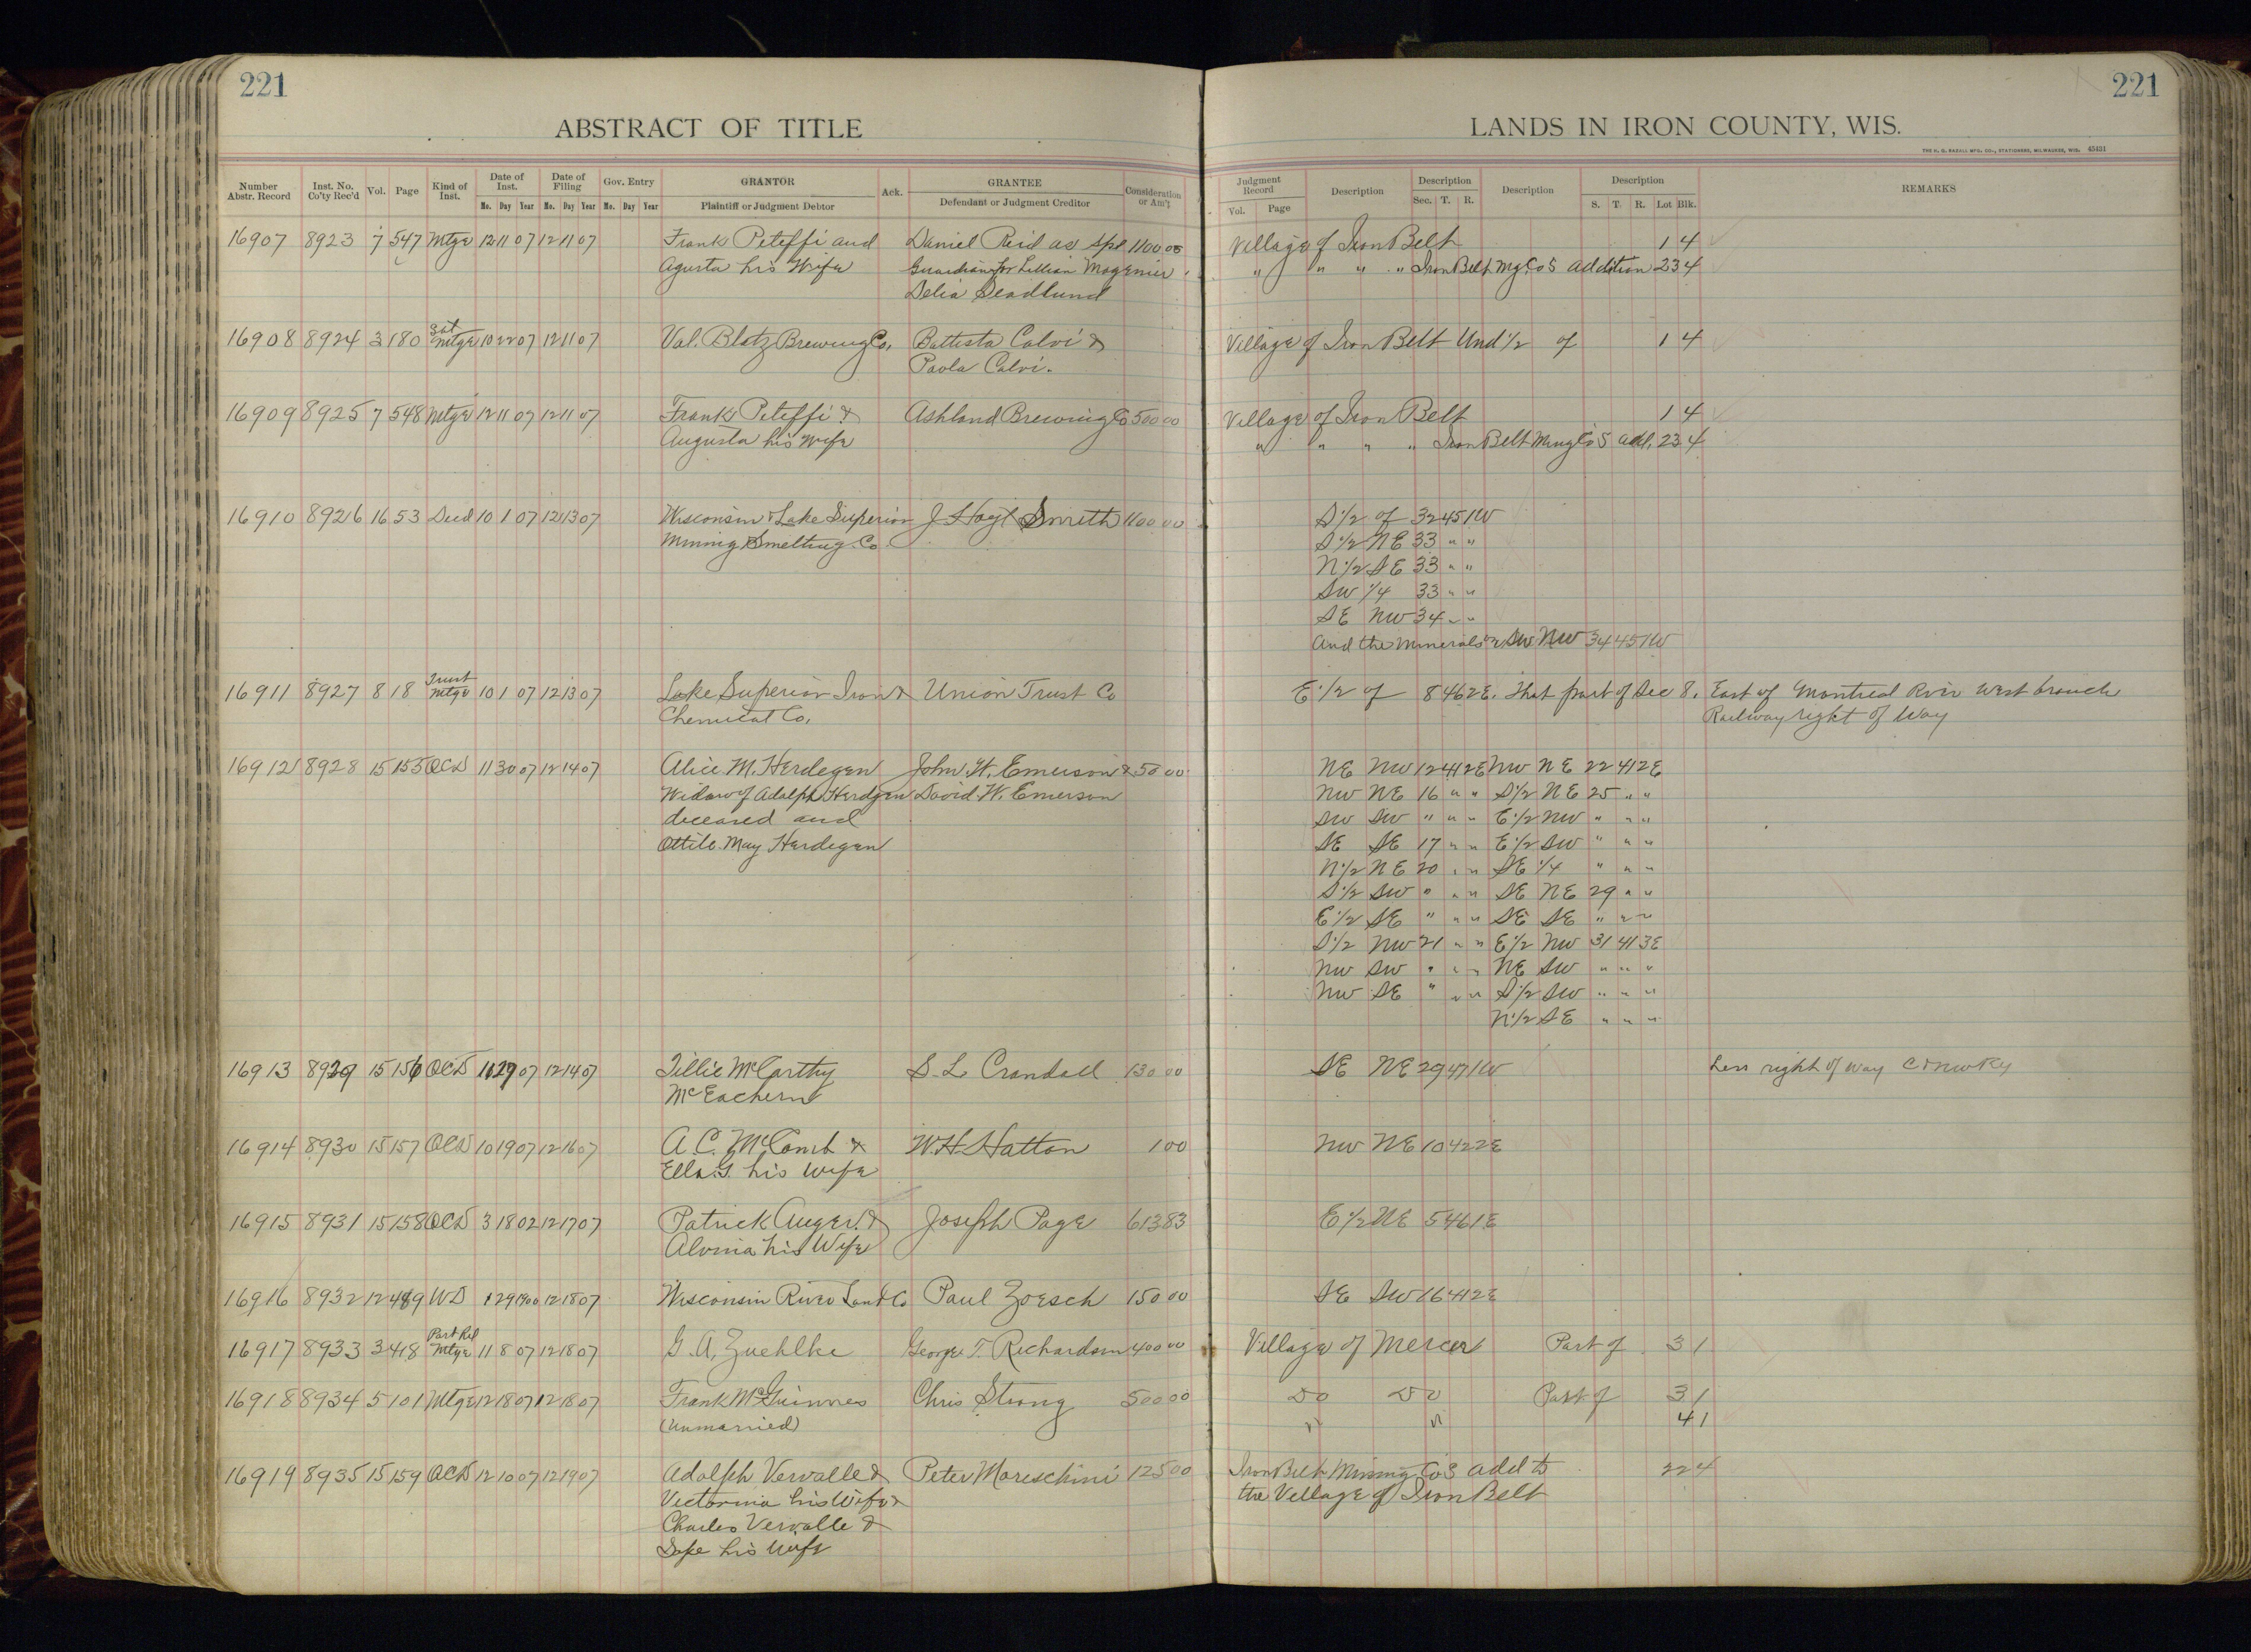 221
ABSTRACT OF TITLE
Number Abstr. Record Inst. No. Co'ty Rec'd Vol. Page Kind of Inst. Date of Inst. Mo. Day Year Date of Filing Mo. Day Year Gov. Entry Mo. Day Year GRANTOR Plaintiff or Judgment Debtor Ack. GRANTEE Defendant or Judgment Creditor Consideration or Am't
221
LANDS IN IRON COUNTY, WIS.
THE H. G. RAZALL MFG. CO., STATIONERS, MILWAUKEE, WIS. 45431
Judgment Record Vol. Page Description Description Sec. T. R. Description Description S. T. R. Lot Blk. REMARKS
16907 8923 7 547 Mtge 12 11 07 12 11 07 Frank Peteffi and Daniel Reid as Spl 1100 00 Village of Iron Belt 1 4
Agusta his Wife Guardian for Lillian Mogenier " " " " Iron Belt Mg Co S Addition 23 4
Delia Seadlund
16908 8924 3 180 Sat Mtge 10 22 07 12 11 07 Val. Blatz Brewing Co. Battista Calvi & Village of Iron Belt Und 1/2 of 1 4
Paola Calvi.
16909 8925 7 548 Mtge 12 11 07 12 11 07 Frank Peteffi & Ashland Brewing Co 500 00 Village of Iron Belt 1 4
Augusta his Wife " " " " Iron Belt Ming Co S Add. 23 4
16910 8926 16 53 Deed 10 1 07 12 13 07 Wisconsin & Lake Superior J. Hoyt Smith 1100 00 S 1/2 of 32 45 1W
Mining & Smelting Co S 1/2 NE 33 " "
N 1/2 SE 33 " "
SW 1/4 33 " "
SE NW 34 " "
And the Minerals in SW NW 34 45 1W
16911 8927 8 18 Trust Mtge 10 1 07 12 13 07 Lake Superior Iron & Union Trust Co E 1/2 of 8 46 2E. that part of Sec 8. East of Montreal River West branch
Chemical Co. Railway right of Way
16912 8928 15 155 QCD 11 30 07 12 14 07 Alice M. Herdegen John H. Emerson & 50 00 NE NW 12 41 2E NW NE 22 41 2E
Widow of Adolph Herdgen David W. Emerson NW NE 16 " " S 1/2 NE 25 " "
deceased and SW SW " " " E 1/2 NW " " "
Ottile May Herdegen SE SE 17 " " E 1/2 SW " " "
N 1/2 NE 20 " " SE 1/4 " " "
S 1/2 SW " " " SE NE 29 " "
E 1/2 SE " " " SE SE " " "
S 1/2 NW 21 " " E 1/2 NW 31 41 3E
NW SW " " " NE SW " " "
NW SE " " " S 1/2 SW " " "
N 1/2 SE " " "
16913 8929 15 156 QCD 11 29 07 12 14 07 Tillie McCarthy S. L. Crandall 130 00 SE NE 29 47 1W Less right of way C & NW Ry
McEachern
16914 8930 15 157 QCD 10 19 07 12 16 07 A. C. McComb & W. H. Hatton 1 00 NW NE 10 42 2E
Ella G. his Wife
16915 8931 15 158 QCD 3 18 02 12 17 07 Patrick Auger & Joseph Page 613 83 E 1/2 NE 5 46 1E
Alvina his Wife
16916 8932 12 489 WD 1 29 1900 12 18 07 Wisconsin River Land Co Paul Zoesch 150 00 SE SW 16 41 2E
16917 8933 3 418 Part Rel Mtge 11 8 07 12 18 07 G. A. Zuehlke George T. Richardson 400 00 Village of Mercer Part of 3 1
16918 8934 5 101 Mtge 12 18 07 12 18 07 Frank McGuinnes Chris Strong 500 00 Do Do Part of 3 1
(Unmarried) " " 4 1
16919 8935 15 159 QCD 12 10 07 12 19 07 Adolph Vervalle & Peter Mareschini 125 00 Iron Belt Mining Co's Add to 22 4
Victorina his Wife & the Village of Iron Belt
Charles Vervalle &
his Wife